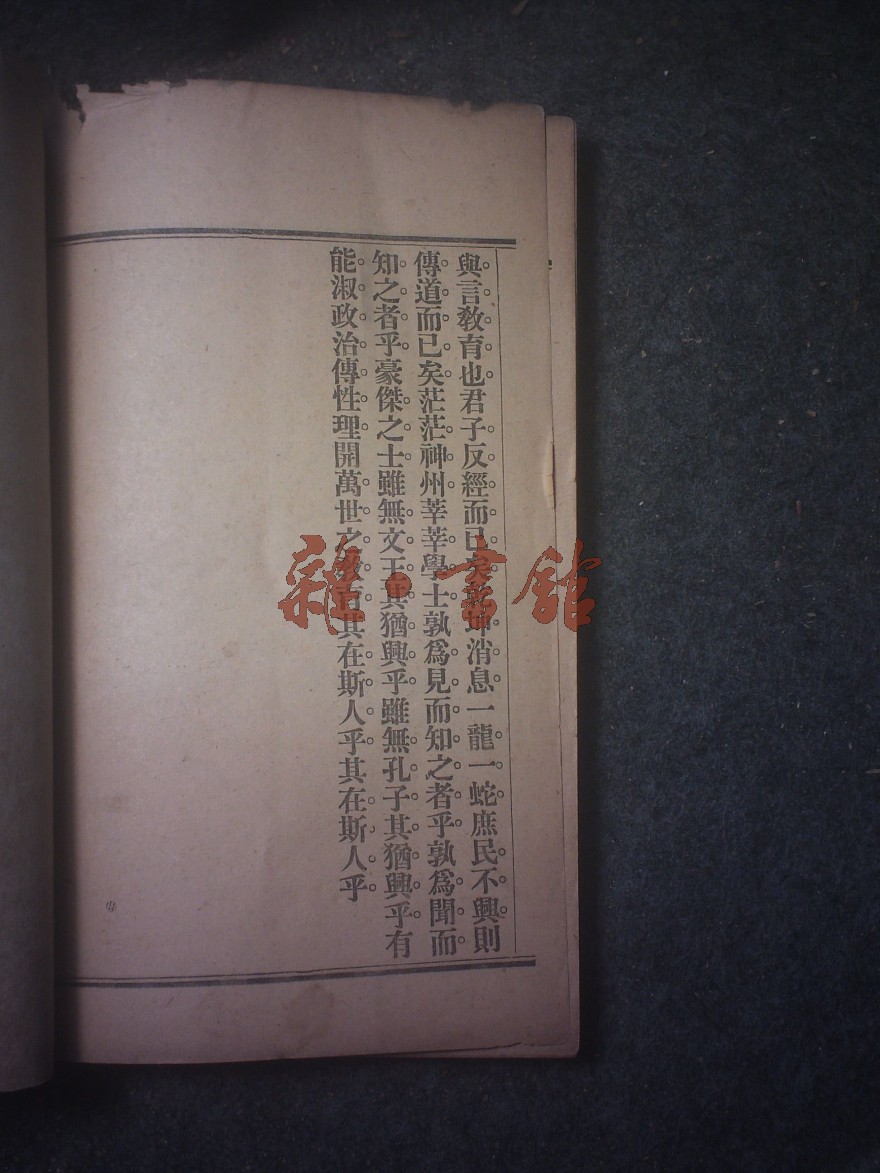 與言敎育也君子反經而已矣乾坤消息一龍一蛇庶民不興則
傳道而已矣茫茫神州莘莘學士孰爲見而知之者乎孰爲聞而
知之者乎豪傑之士雖無文王其猶興乎雖無孔子其猶興乎有
能淑政治傳性理開萬世之其在斯人乎其在斯人乎
雜·書館